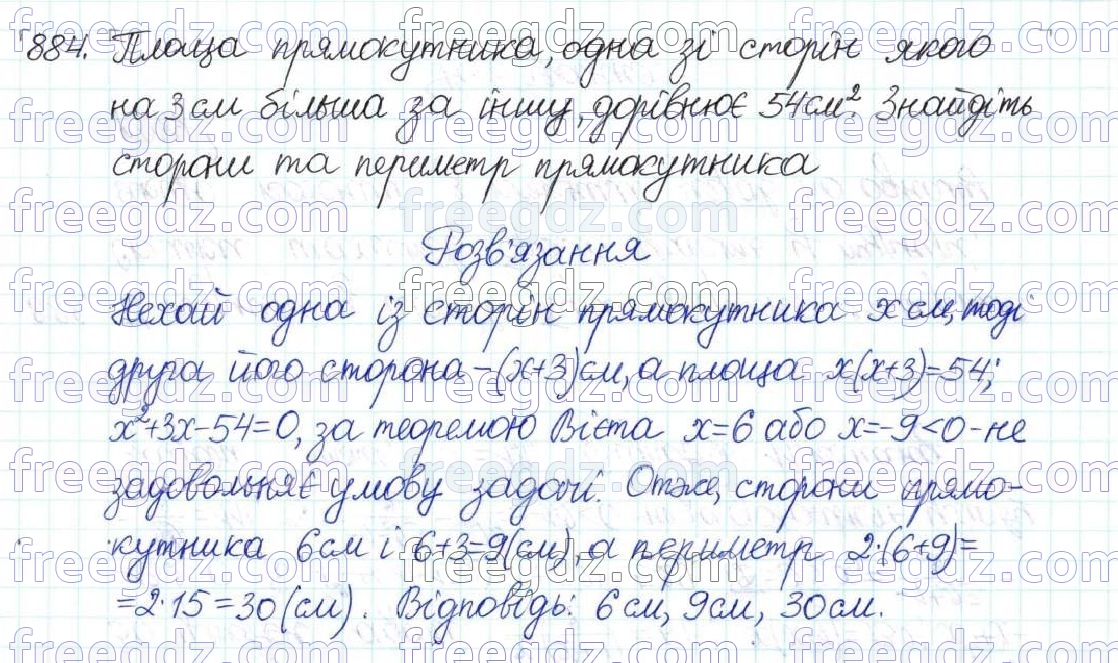 884. Площа прямокутника, одна зі сторін якого
на 3 см більша за іншу, дорівнює 54 см². Знайдіть
сторони та периметр прямокутника
Розв'язання
Нехай одна із сторін прямокутника x см, тоді
друга його сторона - (x+3) см, а площа x(x+3)=54;
x²+3x-54=0, за теоремою Вієта x=6 або x=-9<0 - не
задовольняє умову задачі. Отже, сторони прямо-
кутника 6 см і 6+3=9(см), а периметр 2·(6+9)=
=2·15=30(см). Відповідь: 6 см, 9 см, 30 см.
freegdz.com